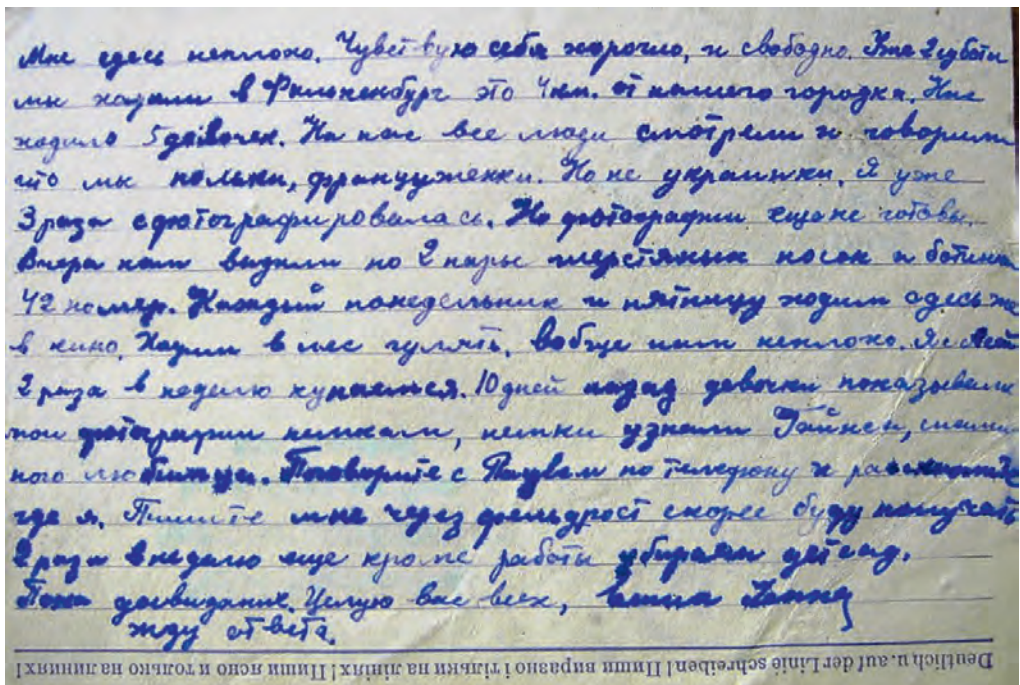 Мне здесь неплохо. Чувствую себя хорошо, и свободно. Уже 2 суботы
мы ходили в Фалькенбург это 4 км. от нашего городка. Нас
ходило 5 девочек. На нас все люди смотрели и говорили
что мы польки, француженки. Но не украинки. Я уже
3 раза сфотографировалась. Но фотографии еще не готовы.
Вчера нам видили по 2 пары шерстяных носок и ботинки
42 номер. Каждый понедельник и пятницу ходим здесь же
в кино. Ходим в лес гулять. Вобще нам неплохо.
2 раза в неделю купаемся. 10 дней назад девочки показывали
мои фотографии немкам, немки узнали
ного любимца. Поговорите с по телефону и
где я. Пишите мне через фельдпост скорее буду получать
2 раза в неделю еще кроме работы убираем детсад.
Пока досвидание. Целую вас всех, ваша
жду ответа.
Deutlich u. auf der Linie schreiben! Пиши виразно і тільки на лініях! Пиши ясно и только на линиях!